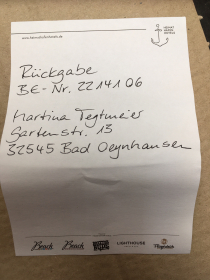 Rückgabe
BE-Nr. 2214106
Martina Tegtmeier
Gartenstr. 13
32545 Bad Oeynhausen
Beach
Beach
LIGHTHOUSE